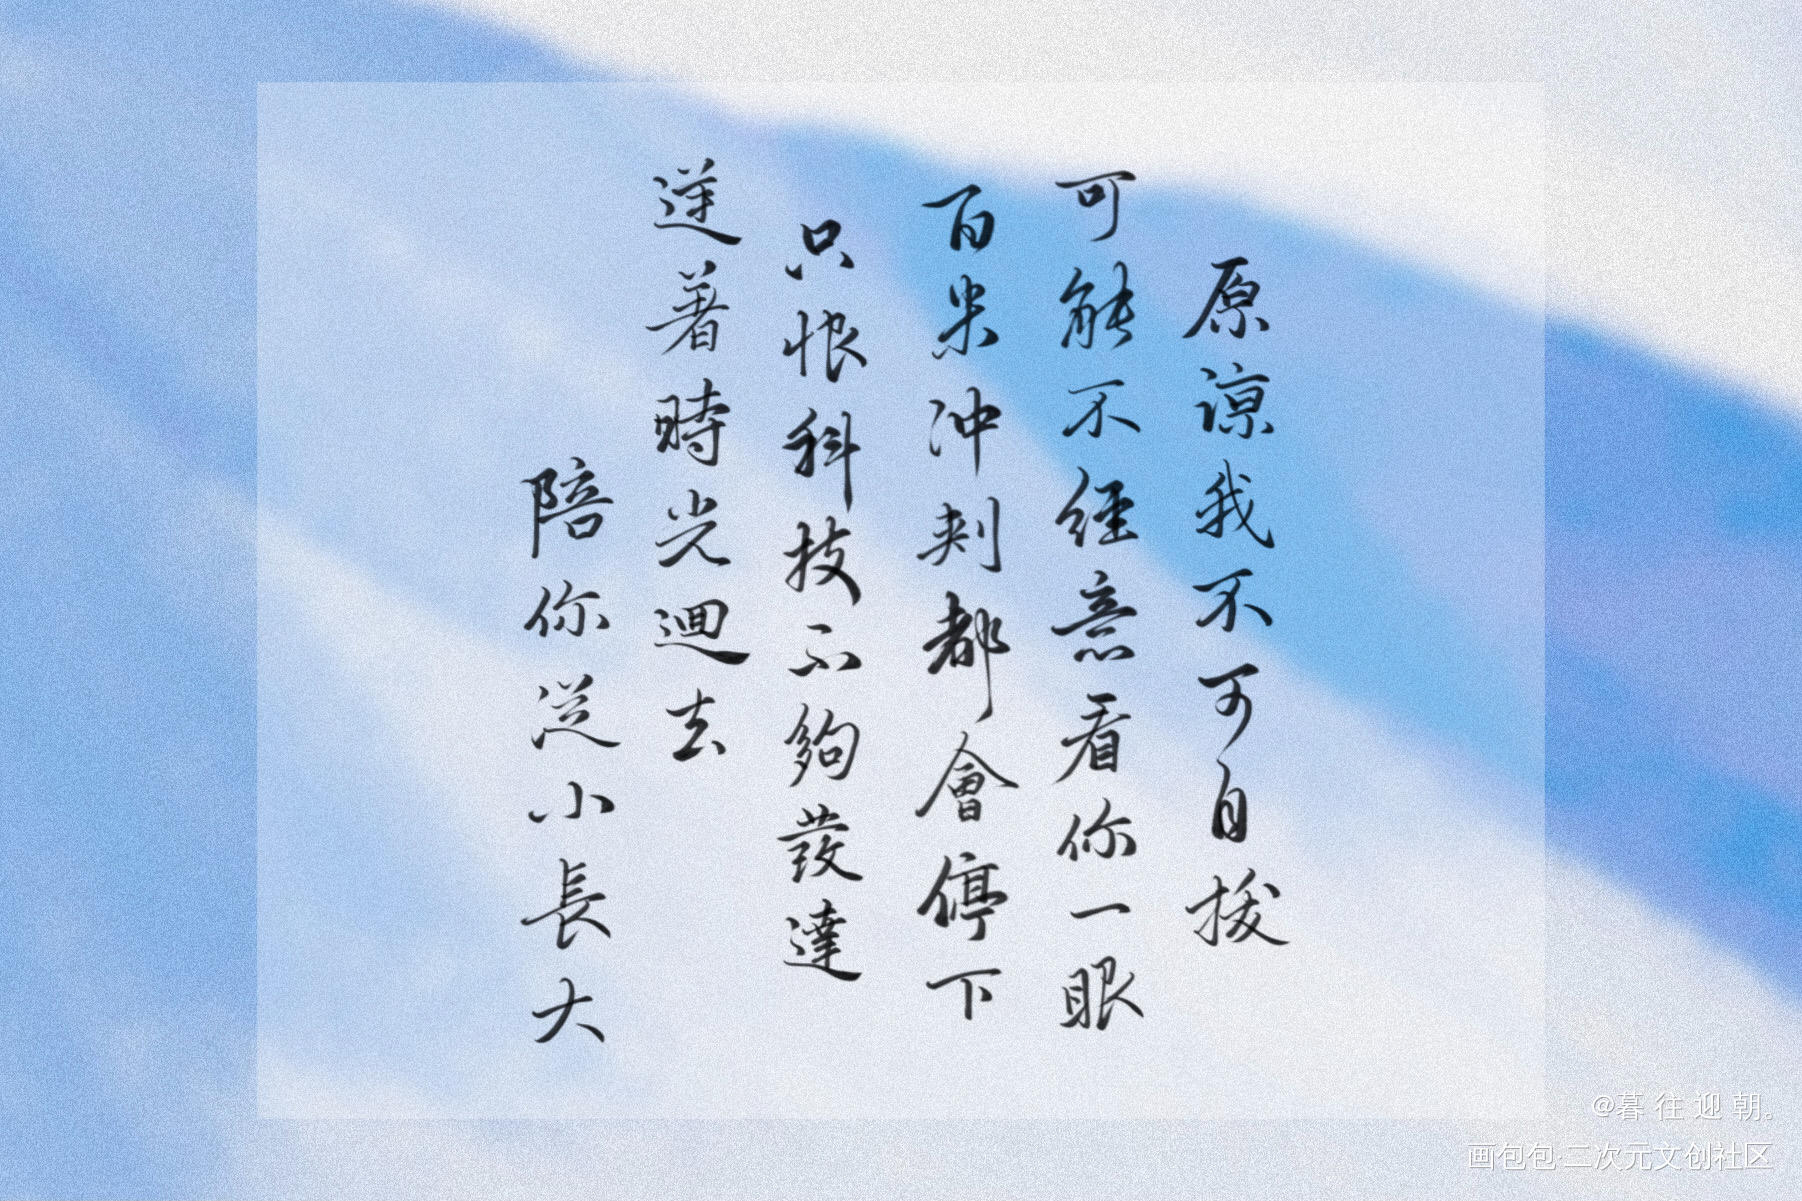 原諒我不可自拔
可能不經意看你一眼
百米冲刺都會停下
只恨科技不夠發達
逆著時光迴去
陪你從小長大
@暮往迎朝。
画包包·二次元文创社区